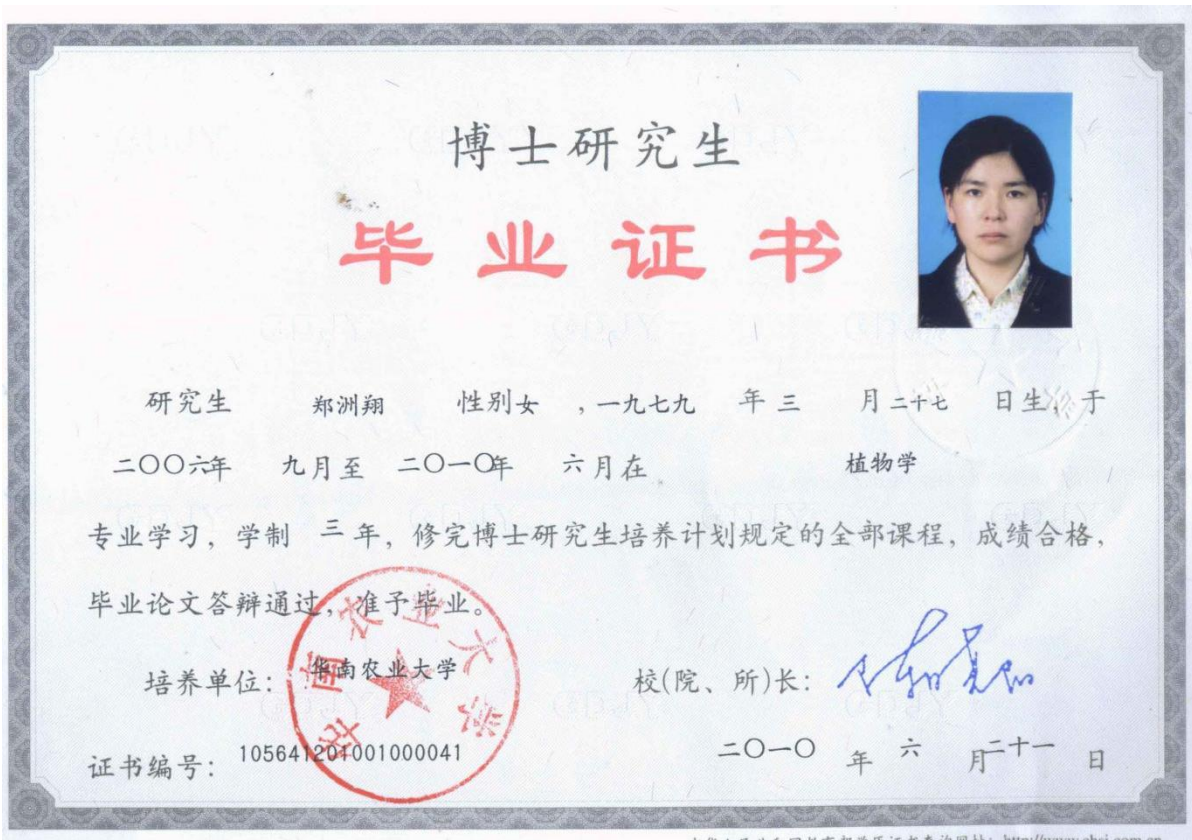 博士研究生
毕业证书
研究生 郑洲翔 性别女 ,一九七九 年 三 月 二十七 日生,于
二〇〇六年 九月至 二〇一〇年 六月在 植物学
专业学习, 学制 三 年, 修完博士研究生培养计划规定的全部课程, 成绩合格,
毕业论文答辩通过, 准予毕业。
培养单位: 华南农业大学
华南农业大学
校(院、所)长:
证书编号: 105641201001000041
二〇一〇 年 六 月二十一 日